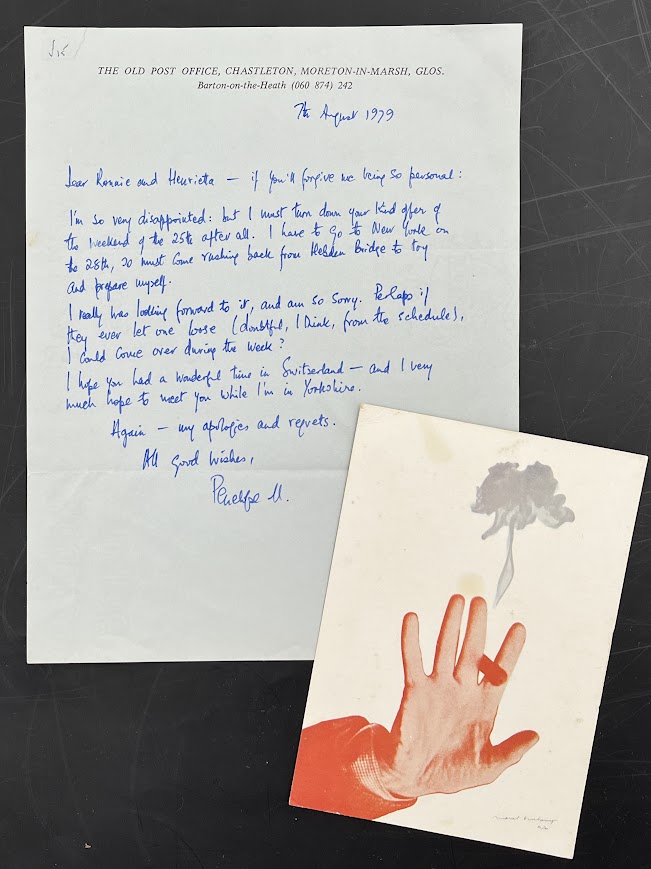 THE OLD POST OFFICE, CHASTLETON, MORETON-IN-MARSH, GLOS.
Barton-on-the-Heath (060 874) 242
7th August 1979
Dear Ronnie and Henrietta — if you'll forgive me being so personal:
I'm so very disappointed: but I must turn down your kind offer of
the weekend of the 25th after all. I have to go to New York on
the 28th, so must come rushing back from Hebden Bridge to try
and prepare myself.
I really was looking forward to it, and am so sorry. Perhaps if
they ever let one loose (doubtful, I think, from the schedule),
I could come over during the week?
I hope you had a wonderful time in Switzerland — and I very
much hope to meet you while I'm in Yorkshire.
Again — my apologies and regrets.
All good wishes,
Penelope M.
Marcel Duchamp